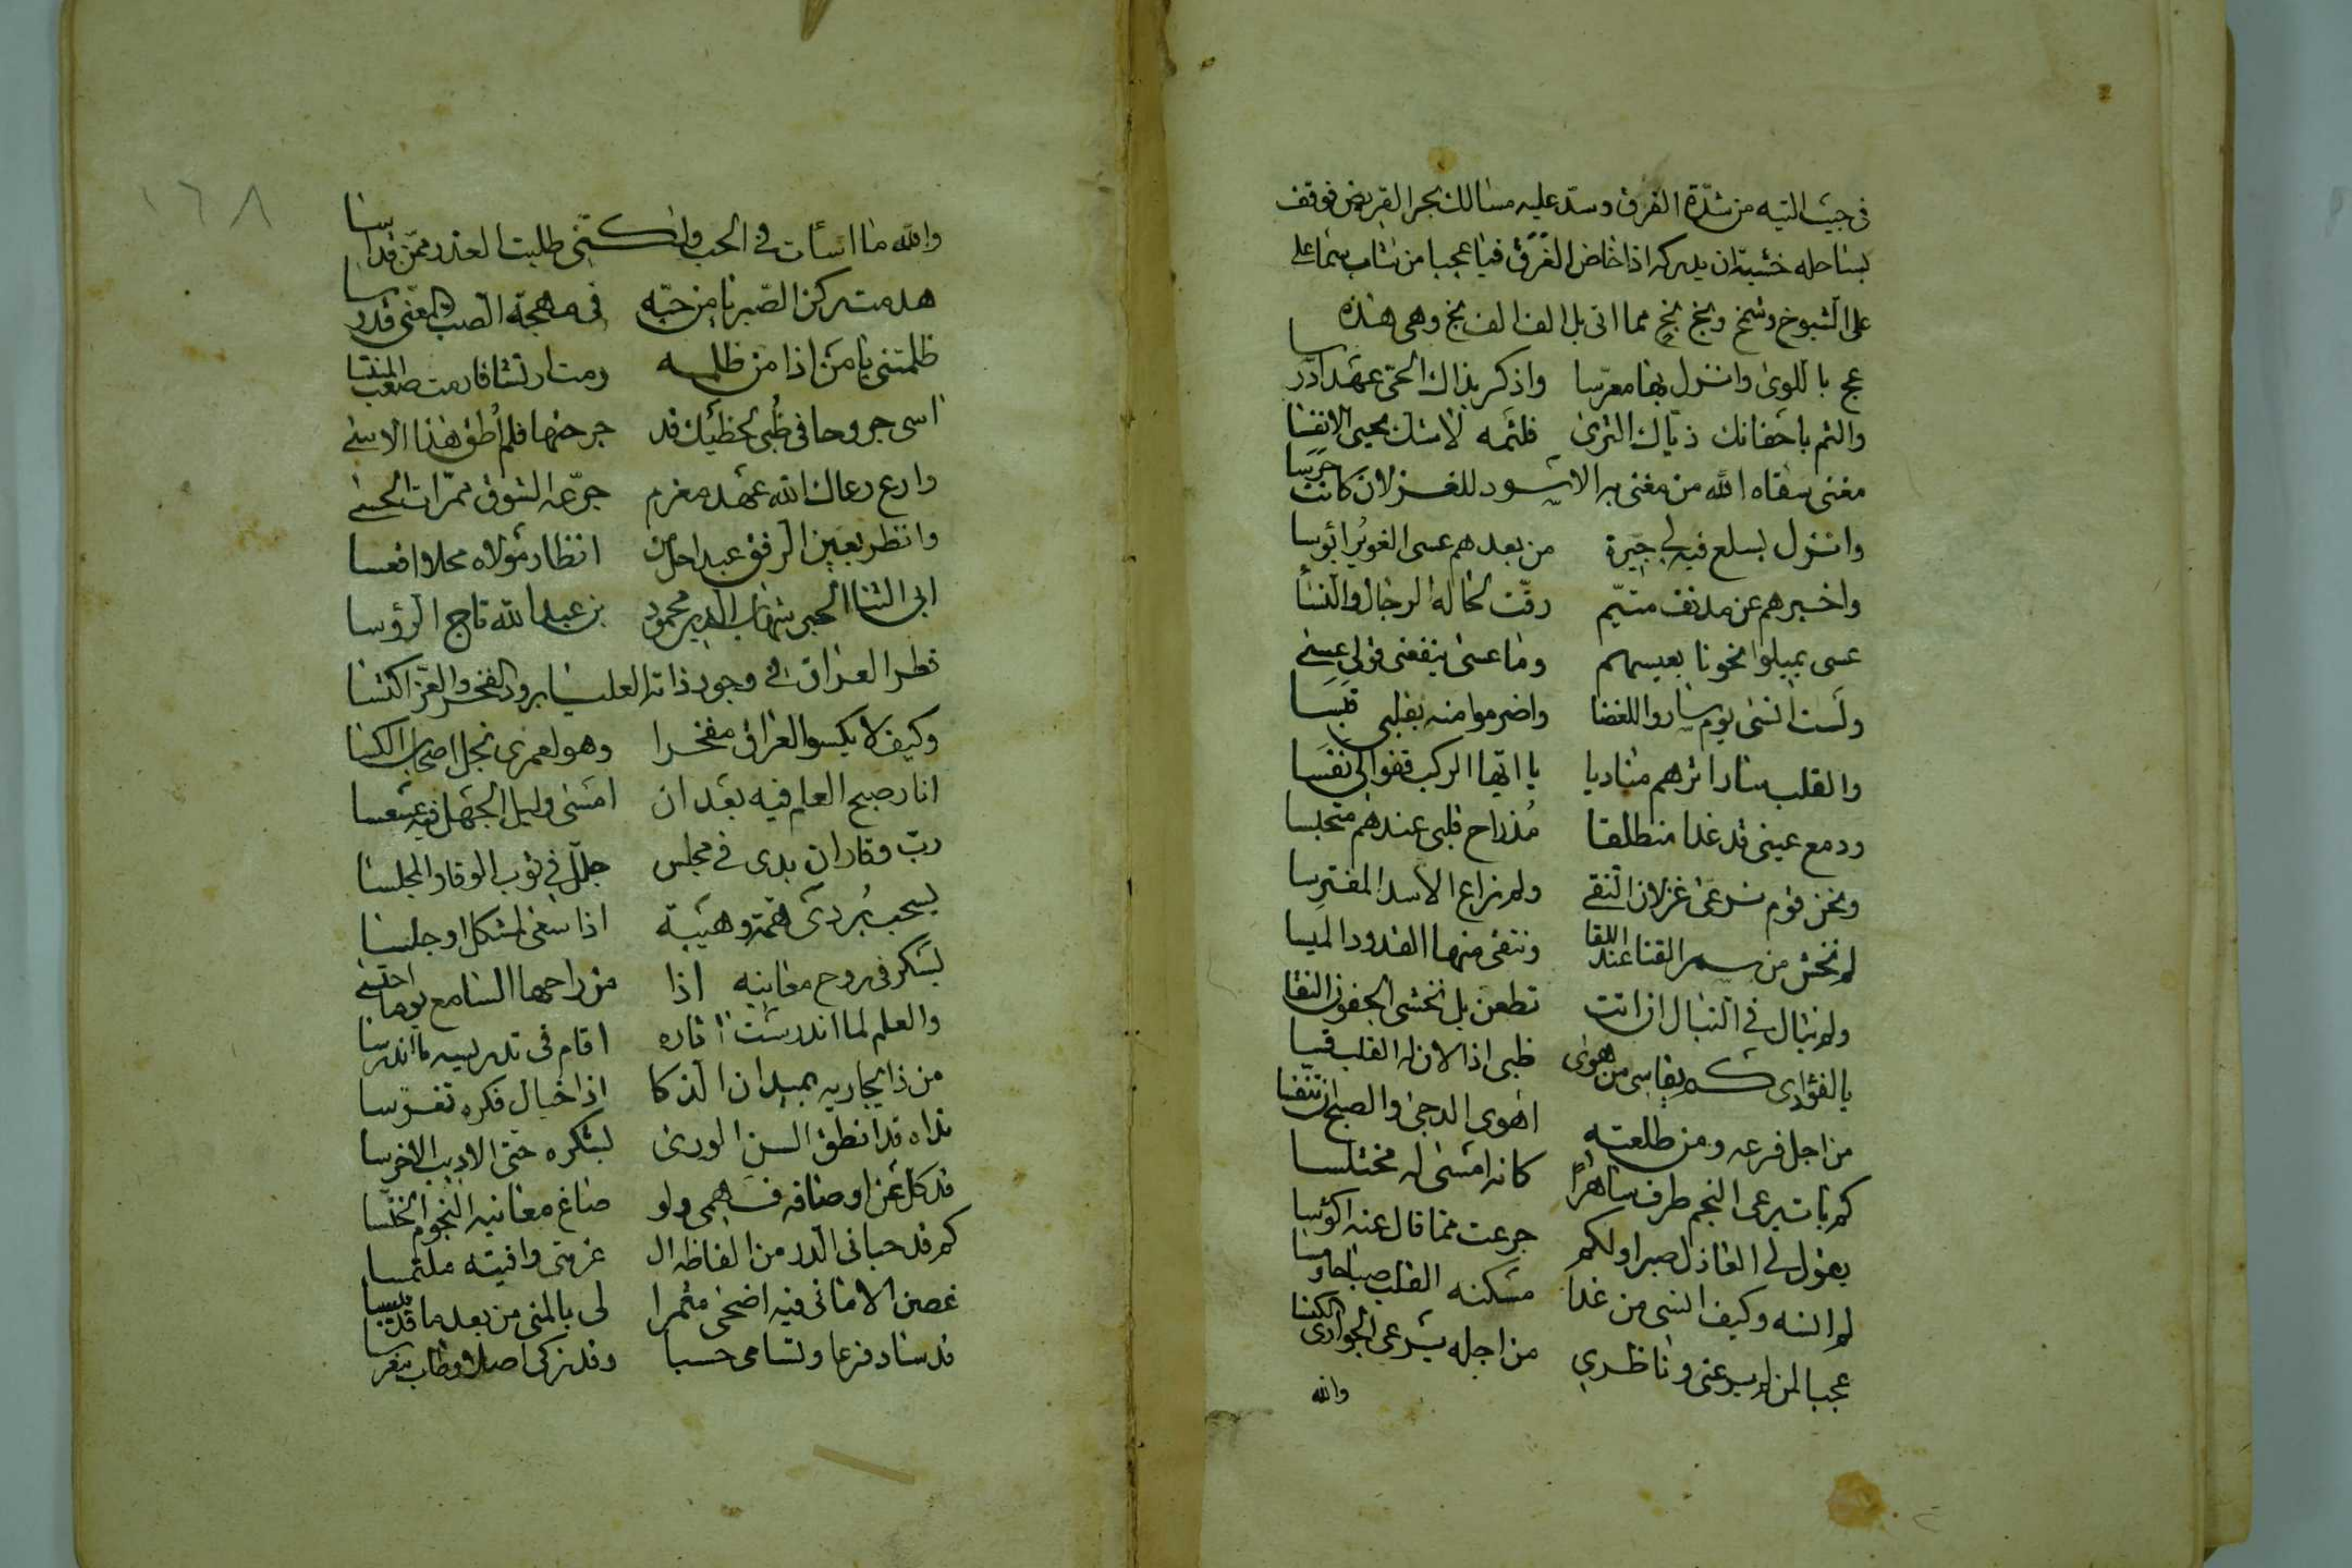 في جيب التيه من شدّة الفرق وسدّ عليه مسالك بحر القريض فوقف
بساحله خشية ان يدركه اذا خاض الغرق فيا عجبا من شاب سما على
على الشيوخ وشمخ وبخ بخٍ مما اتى بل الف الف بخ وهي هذه
عج باللوى وانزل بها معرّسا واذكر بذاك الحيّ عهدا درسا
والثم باجفانك ذيّاك الثرى فلثمه لا شك يحيي الانفسا
مغنى سقاه الله من مغنى به الاسود للغزلان كانت حرسا
وانزل بسلع فيه لي جيرة من بعدهم عسى الغوير ابؤسا
واخبرهم عن مدنف متيّم رقّت لحاله الرجال والنسا
عسى يميلوا نحونا بعيسهم وما عسى ينفعني قولي عسى
ولست انسى يوم ساروا للغضا واضرموا منه بقلبي قبسا
والقلب سار اثرهم مناديا يا ايّها الركب قفوا لي نفسا
ودمع عيني قد غدا منطلقا مُذ راح قلبي عندهم محتبسا
ونحن قوم نرعى غزلان النقى ولم نراع الاسد المفترسا
لم نخش من سمر القنا عند اللقا ونتقي منها القدود الميسا
ولم نبال في النبال ان اتت تطعن بل نخشى الجفون النعّسا
يا لفؤادي كم يقاسي من هوى ظبي اذا لان له القلب قسا
من اجل فرعه ومن طلعته اهوى الدجى والصبح ان تنفّسا
كم بات يرعى النجم طرف ساهرا كانه امسى له مختلسا
يقول لي العاذل صبرا ولكم جرعت مما قال عنه اكؤسا
لم انسه وكيف انسى من غدا مسكنه القلب صباحا ومسا
عجبا لمن لم يرعني وناظري من اجله يرعى الجواري الكنسا
والله
١٦٨
والله ما اسأت في الحب ولكنّني طلبت العذر ممّن قد اسا
هدمت ركن الصبر يا من حبّه في مهجة الصب المعنّى قد رسا
ظلمتني يا من اذا من ظلمه رمت ارتشافا رمت صعب
اسى جروحا في ظُبى لحظيك قد جرحتها فلم أُطق هذا الاسى
وارع رعاك الله عهد مغرم جرّعه الشوق ممرّات الحسى
وانظر بعين الرفق عبدا انظار مولاه محلا اقعسا
ابي الثنا الحبر شهاب الدين محمود بن عبد الله تاج الرؤسا
قطر العراق في وجود ذاته العليا برود الفخر والعز اكتسا
وكيف لا يكسو العراق مفخرا وهو لعمري نجل اصحاب الكسا
انار صبح العلم فيه بعد ان امسى وليل الجهل فيه عسعسا
ربّ وقار ان بدى في مجلس جلّل في ثوب الوقار المجلسا
يسحب بُردى همّة وهيبة اذا سعى لمشكل او جلسا
يسكر في روح معانيه اذا من راحها السامع يوما احتسى
والعلم لما اندرست آثاره اقام في تدريسه ما اندرسا
من ذا يجاريه بميدان الذكا اذا خيال فكره تفرّسا
نداه قد انطق السن الورى لشكره حتى الاديب الاخرسا
قد كل عن اوصافه فهمي ولو صاغ معانيه النجوم الخنّسا
كم قد حباني الدر من الفاظه ال غر متى وافيته ملتمسا
غصن الاماني فيه اضحى مثمرا لي بالمنى من بعد ما قد يبسا
قد ساد فرعا وتسامى حسبا وقد زكى اصلا وطاب مغرسا